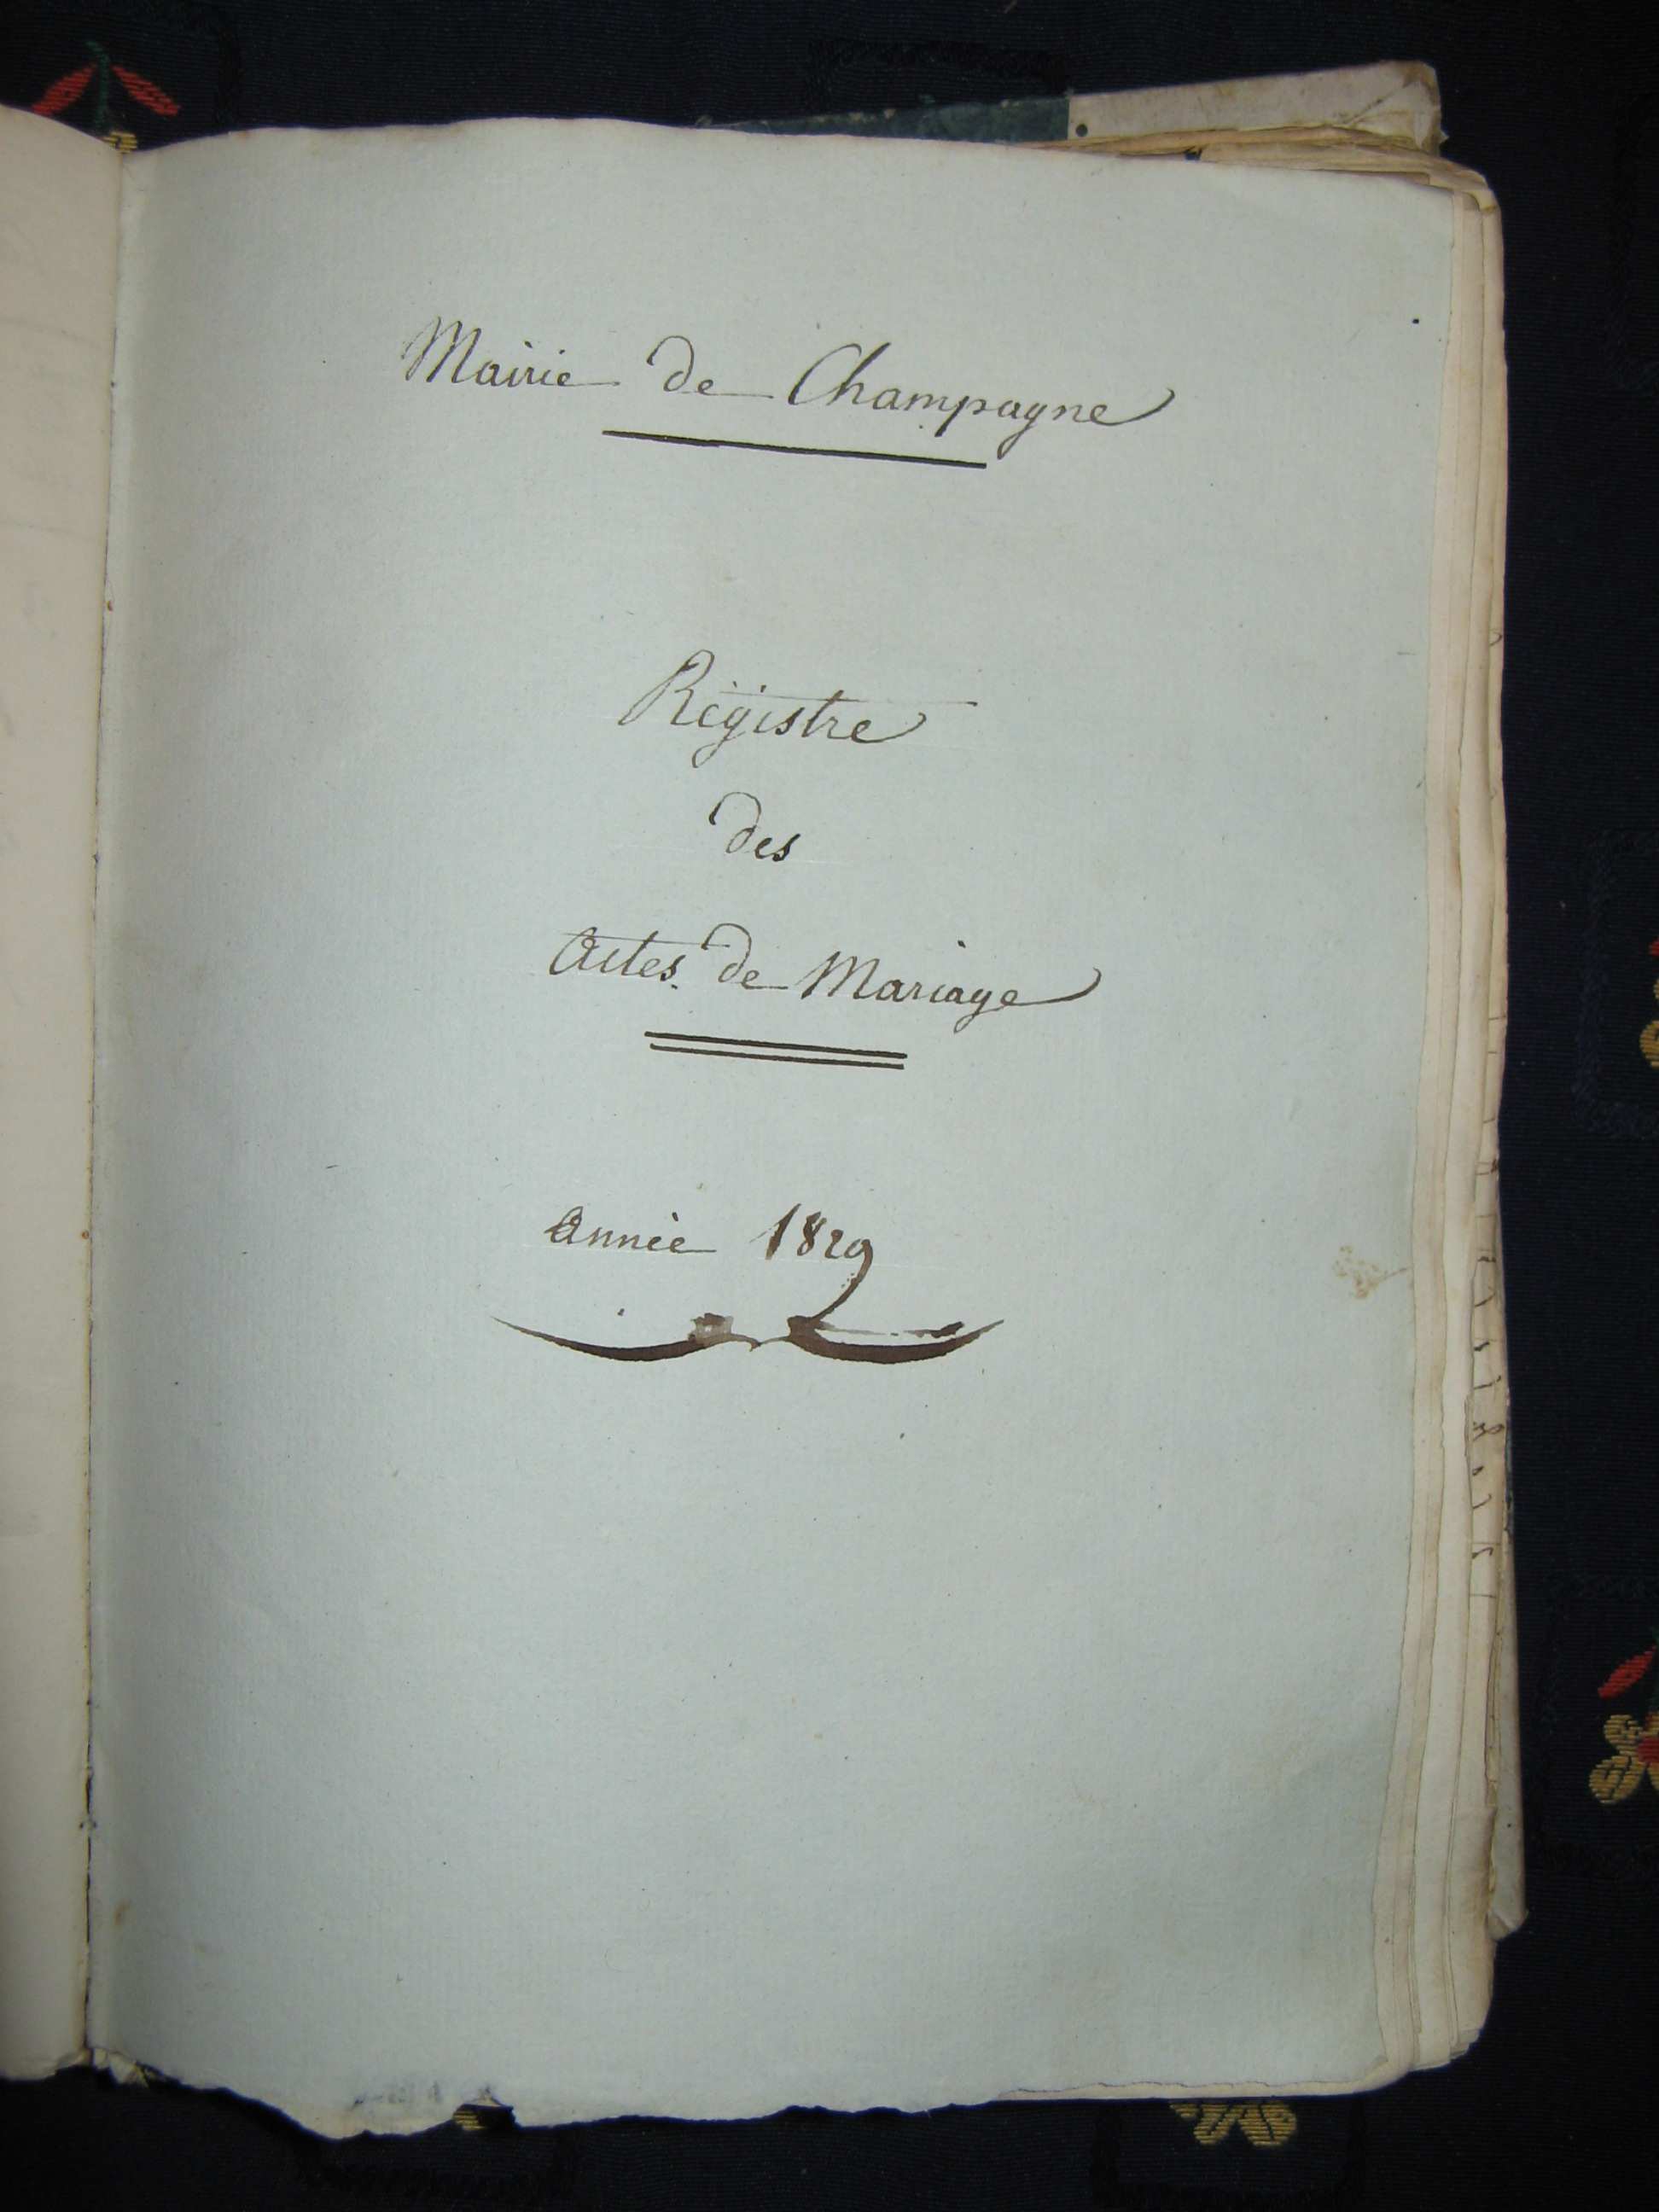 Mairie de Champagne
Régistre
des
Actes de Mariage
Année 1829